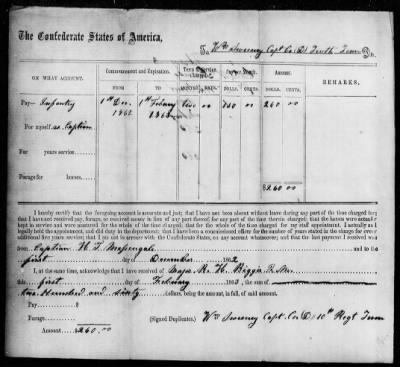 The Confederate States of America,
To Wm Sweeny Capt Co (D) Tenth Tenn Dr.
ON WHAT ACCOUNT. Commencement and Expiration. Term of Service charged. Pay per Month. Amount. REMARKS.
FROM TO MONTHS. DAYS. DOLLS. CENTS. DOLLS. CENTS.
Pay— Infantry 1st Dec. 1st Febuary Two 00 130 00 260 00
For myself as Captain 1862 1863
For years service
Forage for horses.
$260 00
I hereby certify that the foregoing account is accurate and just; that I have not been absent without leave during any part of the time charged for;
that I have not received pay, forage, or received money in lieu of any part thereof for any part of the time therein charged; that the horses were actually
kept in service and were mustered for the whole of the time charged; that for the whole of the time charged for my staff appointment, I actually and
legally held the appointment, and did duty in the department; that I have been a commissioned officer for the number of years stated in the charge for every
additional five years service; that I am not in arrears with the Confederate States, on any account whatsoever; and that the last payment I received was
from Captain H. T. Massengale and to the
first day of December 1862
I, at the same time, acknowledge that I have received of Major R. H.
this first day of Febuary 1863, the sum of
two Hundred and sixty dollars, being the amount, in full, of said account.
Pay
Forage
Amount $260.00 (Signed Duplicates.) Wm Sweeney Capt. Co (D) 10th Regt Tenn